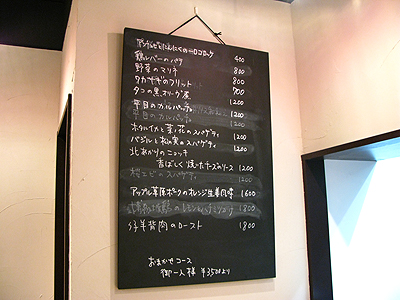 鶏レバーのパテ 600
野菜のマリネ 800
ワカサギのフリット 800
タコの黒オリーヴ煮 900
平目のカルパッチョ 1200
ホタルイカと菜の花のスパゲティ 1200
バジルと松の実のスパゲティ 1200
北あかりのニョッキ
香ばしく焼いたチーズのソース 1200
桜エビのスパゲティ 1200
アップル草原ポークのオレンジ生姜風味 1600
1800
仔羊背肉のロースト 1800
おまかせコース
御一人様 ¥3500より